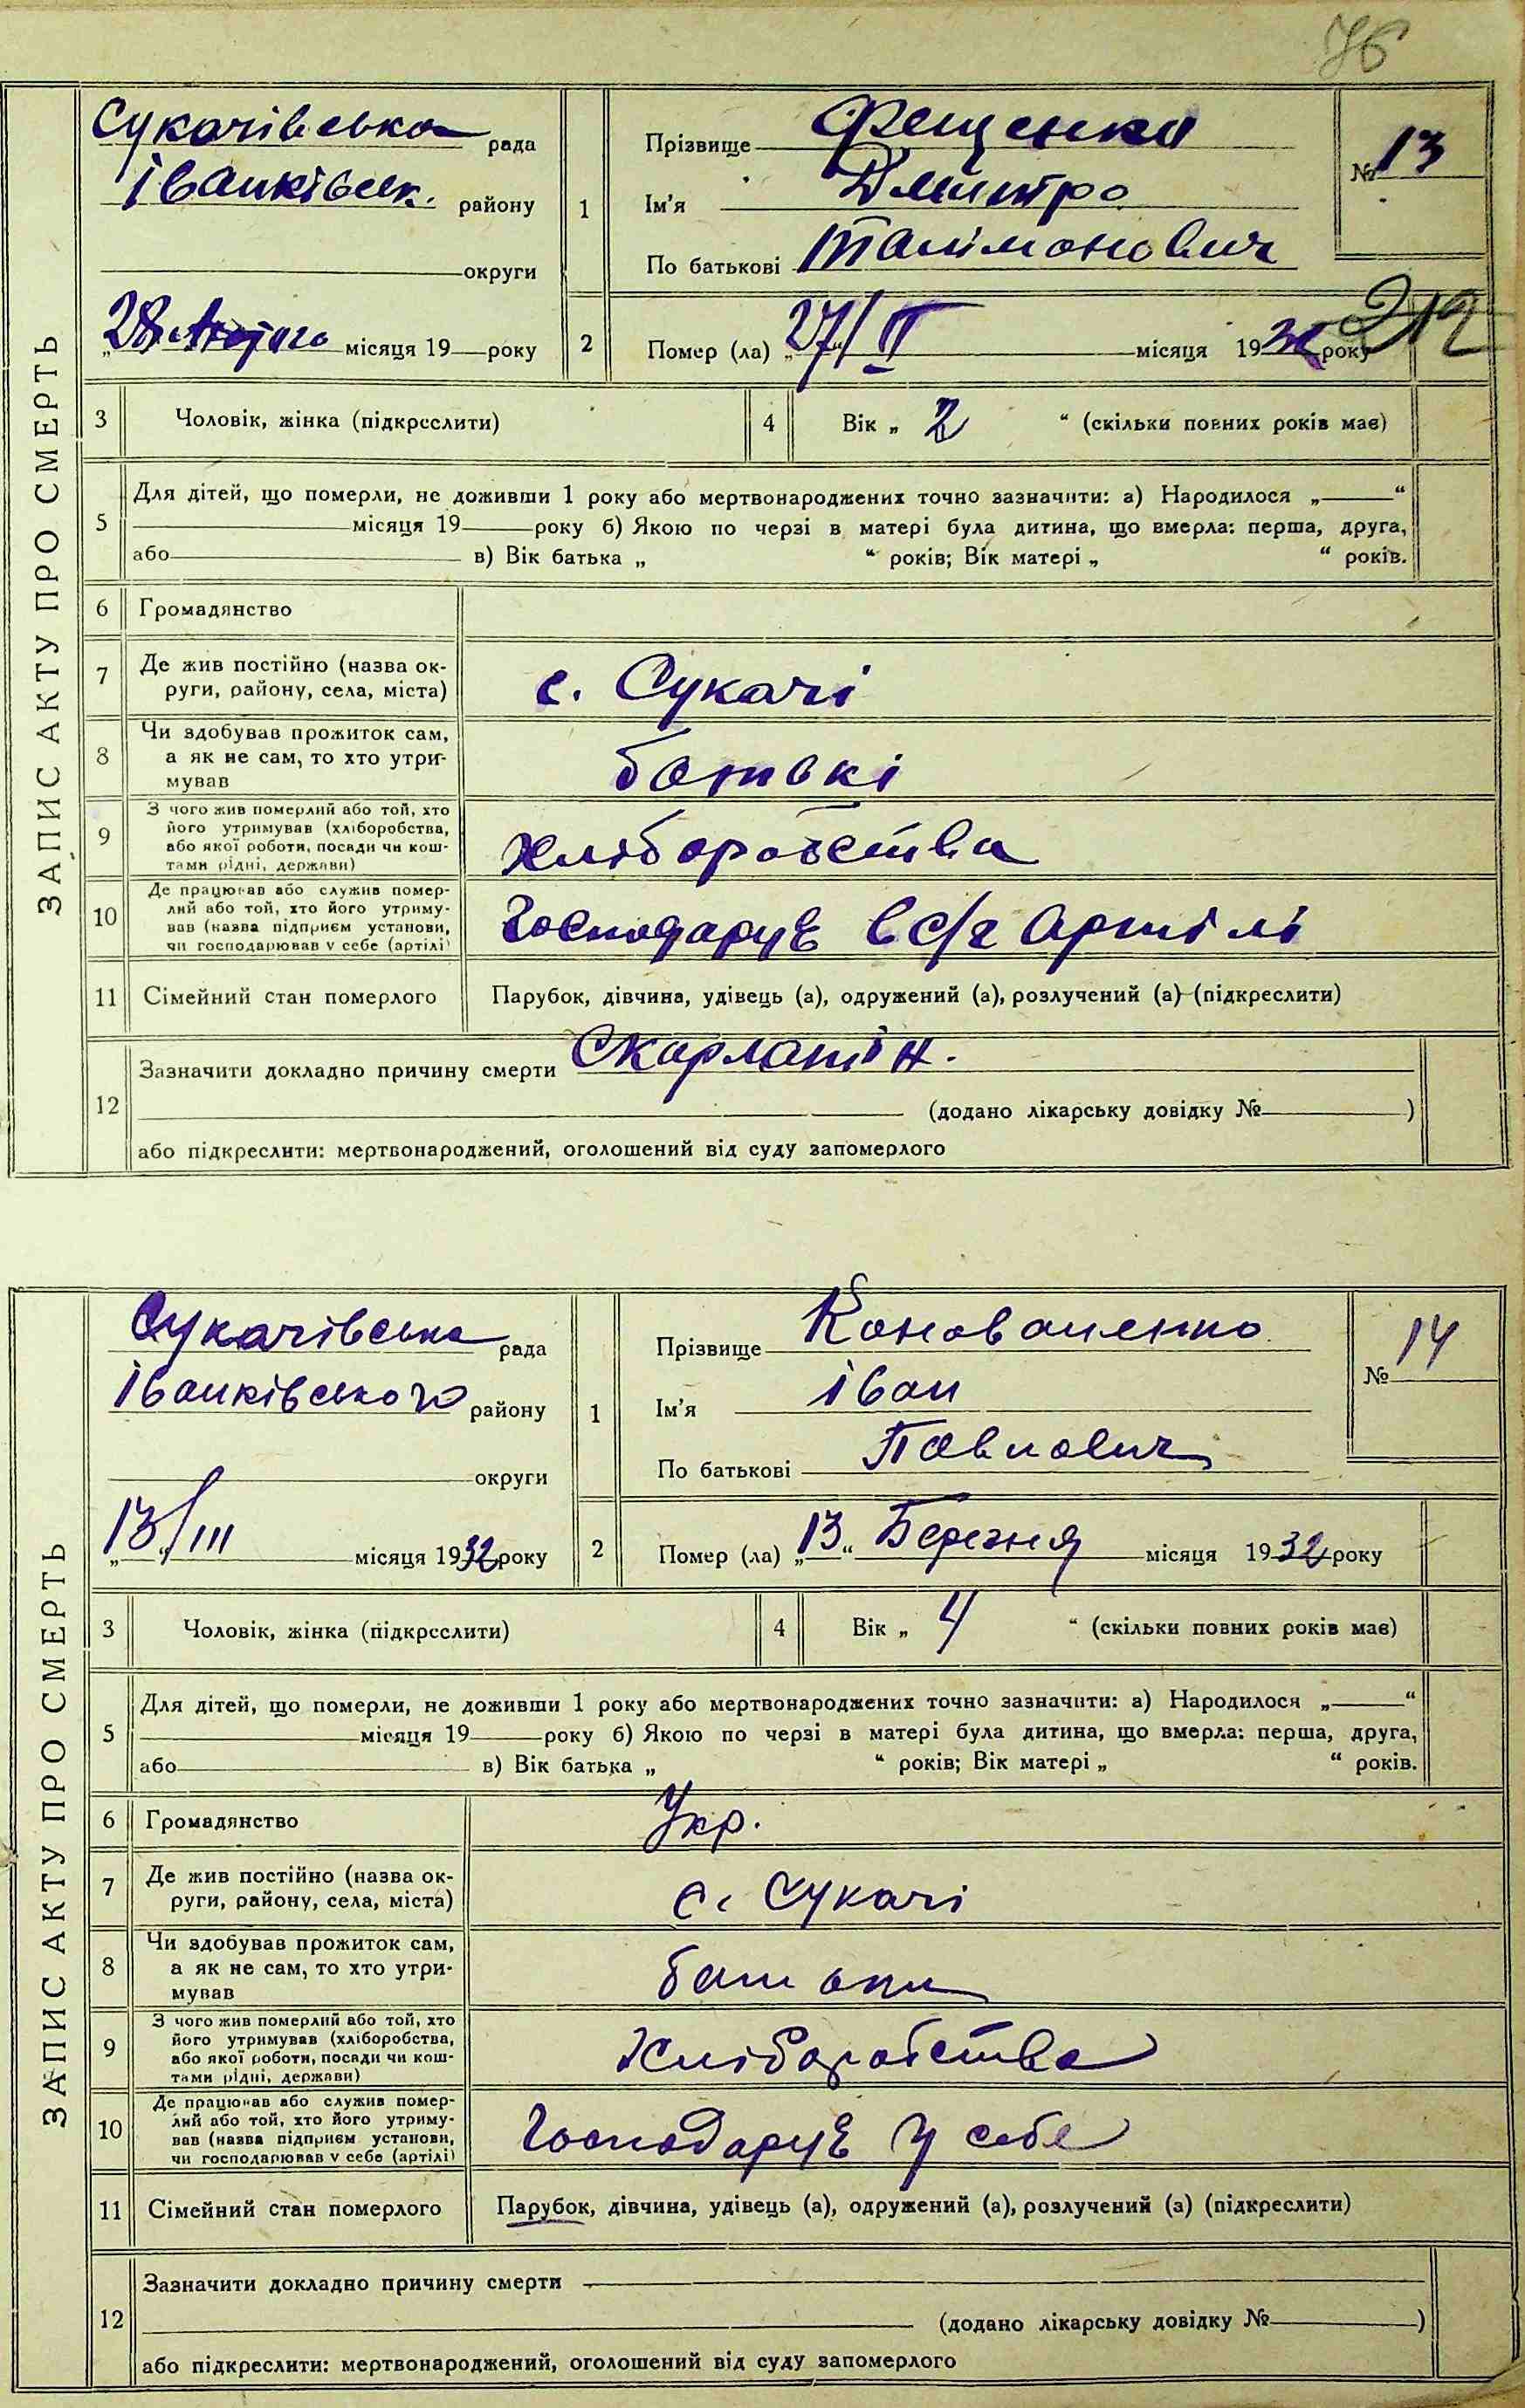 76
ЗАПИС АКТУ ПРО СМЕРТЬ
Сукачівська рада
Іванківськ. району
округи
„28 Лютого місяця 19 року
1
Прізвище Фещенко
Ім'я Дмитро
По батькові Талімонович
№ 13
2
Помер (ла) „27/II місяця 1932 року
212
3 Чоловік, жінка (підкреслити)
4 Вік „ 2 “ (скільки повних років має)
5 Для дітей, що померли, не доживши 1 року або мертвонароджених точно зазначити: а) Народилося „ “
місяця 19 року б) Якою по черзі в матері була дитина, що вмерла: перша, друга,
або в) Вік батька „ “ років; Вік матері „ “ років.
6 Громадянство
7 Де жив постійно (назва ок-
руги, району, села, міста)
с. Сукачі
8 Чи здобував прожиток сам,
а як не сам, то хто утри-
мував
батькі
9 З чого жив померлий або той, хто
його утримував (хліборобства,
або якої роботи, посади чи кош-
тами рідні, держави)
хліборобства
10 Де працював або служив помер-
лий або той, хто його утриму-
вав (назва підприєм установи,
чи господарював у себе (артілі)
Господарує в с/г Артілі
11 Сімейний стан померлого
Парубок, дівчина, удівець (а), одружений (а), розлучений (а) (підкреслити)
12 Зазначити докладно причину смерти Скарлатін.
(додано лікарську довідку № )
або підкреслити: мертвонароджений, оголошений від суду запомерлого
ЗАПИС АКТУ ПРО СМЕРТЬ
Сукачівська рада
Іванківського району
округи
„13/III місяця 1932 року
1
Прізвище Коноваленко
Ім'я Іван
По батькові Павлович
№ 14
2
Помер (ла) „13“ Березня місяця 1932 року
3 Чоловік, жінка (підкреслити)
4 Вік „ 4 “ (скільки повних років має)
5 Для дітей, що померли, не доживши 1 року або мертвонароджених точно зазначити: а) Народилося „ “
місяця 19 року б) Якою по черзі в матері була дитина, що вмерла: перша, друга,
або в) Вік батька „ “ років; Вік матері „ “ років.
6 Громадянство
Укр.
7 Де жив постійно (назва ок-
руги, району, села, міста)
с. Сукачі
8 Чи здобував прожиток сам,
а як не сам, то хто утри-
мував
батьки
9 З чого жив померлий або той, хто
його утримував (хліборобства,
або якої роботи, посади чи кош-
тами рідні, держави)
Хліборобства
10 Де працював або служив помер-
лий або той, хто його утриму-
вав (назва підприєм установи,
чи господарював у себе (артілі)
Господарує у себе
11 Сімейний стан померлого
Парубок, дівчина, удівець (а), одружений (а), розлучений (а) (підкреслити)
12 Зазначити докладно причину смерти
(додано лікарську довідку № )
або підкреслити: мертвонароджений, оголошений від суду запомерлого